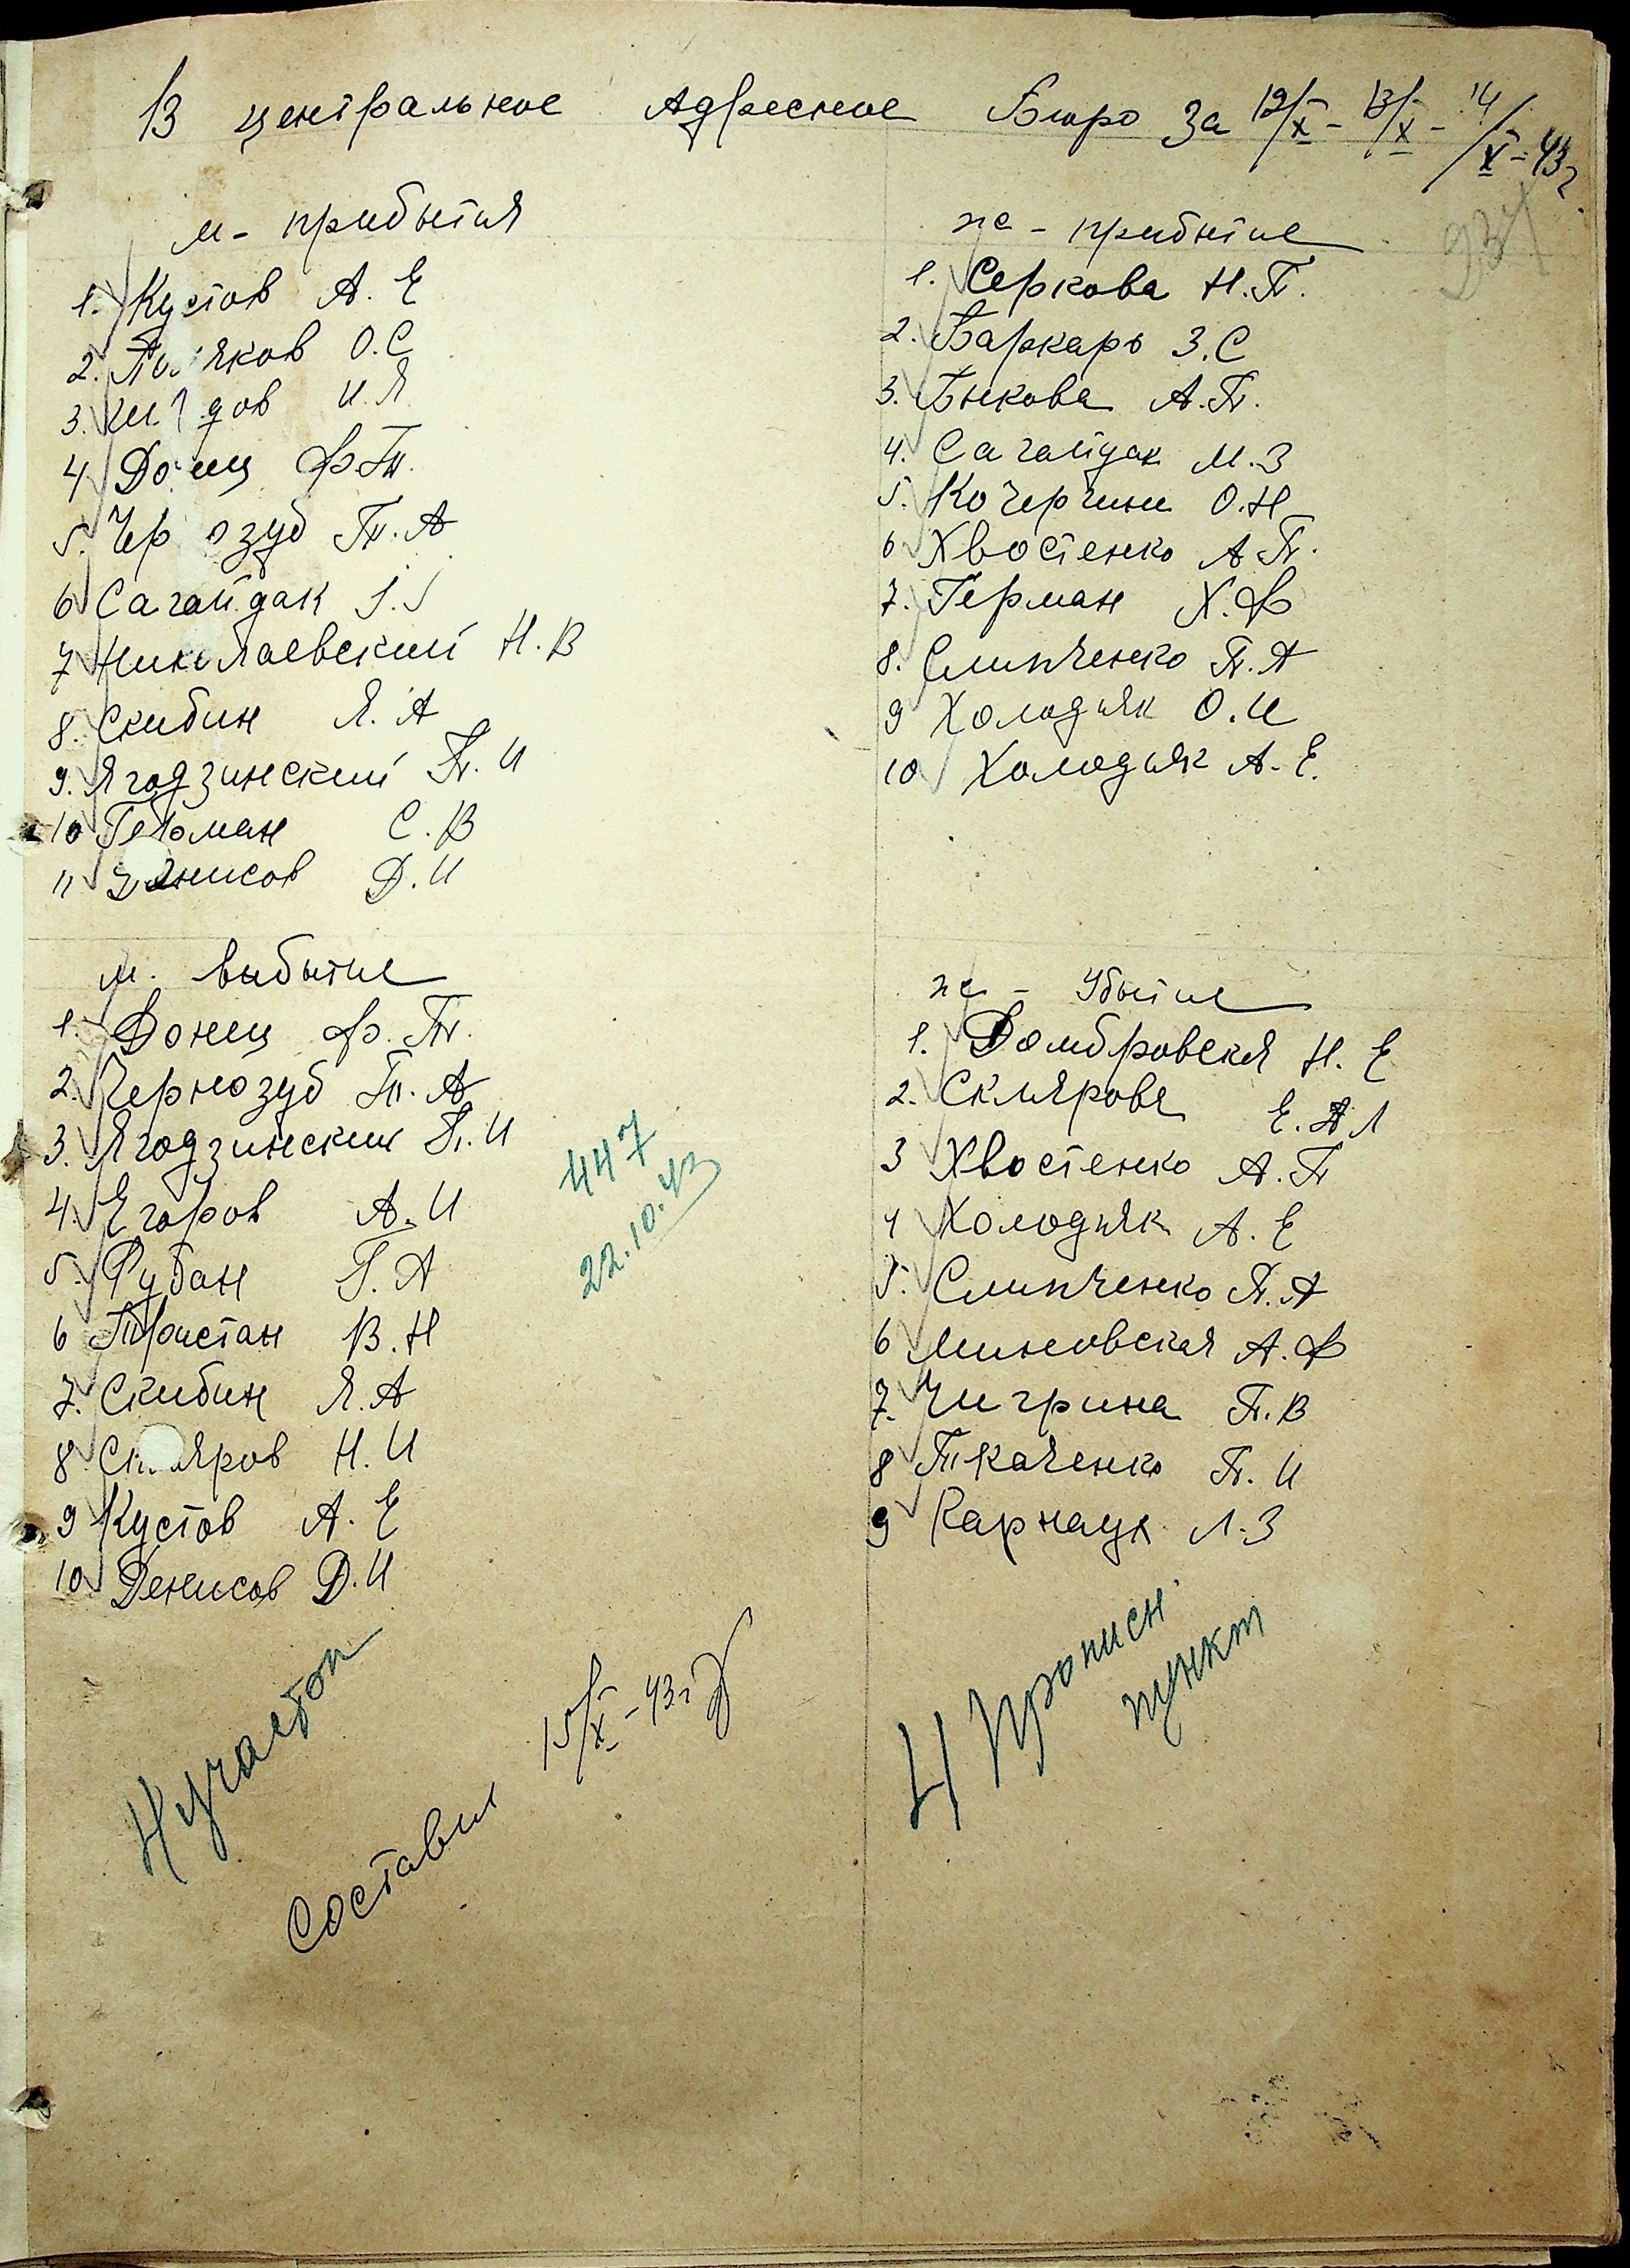 В центральное Адресное Бюро за 12/X - 13/X - 14/X - 43 г.
934
м - прибытия
1. Кустов А. Е
2. О.С
3. И.Я
4 До ец Ф.Т.
5. Чер озуб Т. А
6 Сагайдак
7 Николаевский Н. В
8. Скибин Я. А
9. Ягодзинский П. И
10 Герман С. В
11 Денисов Д. И
же - прибытие
1. Серкова Н. П.
2. Баркарь З. С
3. Быкова А. П.
4. Сагайдак М. З
5. О. Н
6 Хвостенко А П.
7. Герман Х. Ф
8. Слипченко П. А
9 Холодняк О. И
10 Холодняк А. Е.
м. выбытие
1. Донец Ф. Т.
2. Чернозуб Т. А
3. Ягодзинский П. И
4. Егоров А. И
5. Рубан Г. А
6 Тристан В. Н
7. Скибин Я. А
8 Ск ляров Н. И
9 Кустов А. Е
10 Денисов Д. И
447
22.10.43
же - Убытие
1. Домбровская Н. Е
2. Склярова Е. Л
3 Хвостенко А. П
4 Холодняк А. Е
5. Слипченко П. А
6 Линовская А. Ф
7. Чигрина П. В
8 Ткаченко П. И
9 Карнаух Л. З
4 участок
Составил 15/X - 43 г
4 Прописн.
пункт